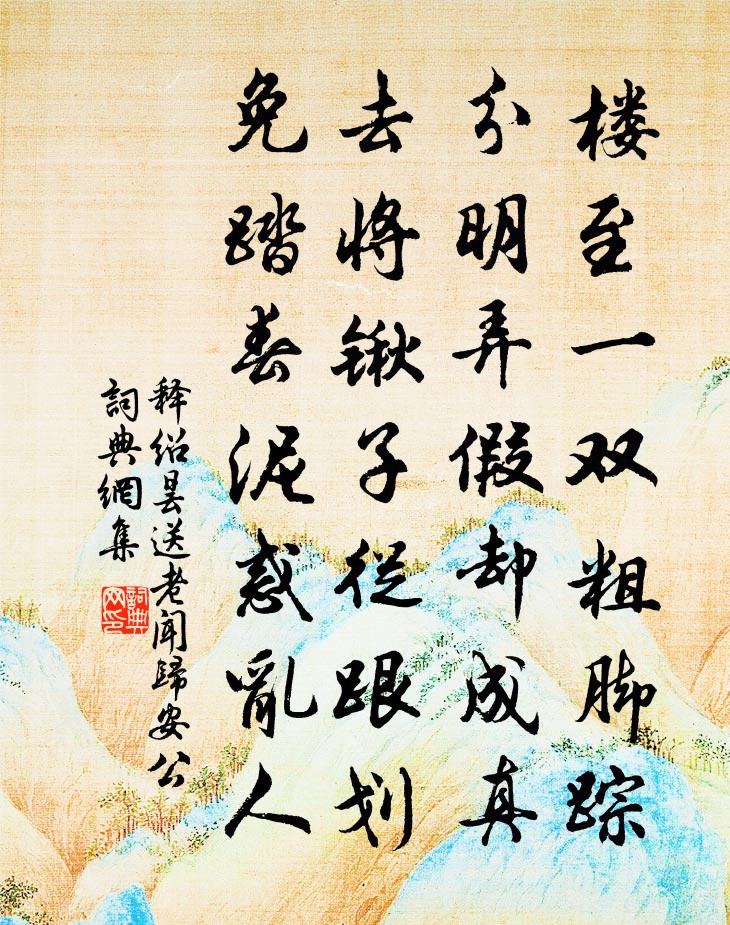 楼至一双粗脚踪
分明弄假却成真
去将锹子从跟划
免踏春泥惑乱人
释绍昙送老闻归安公
詞典網集
詞典网印